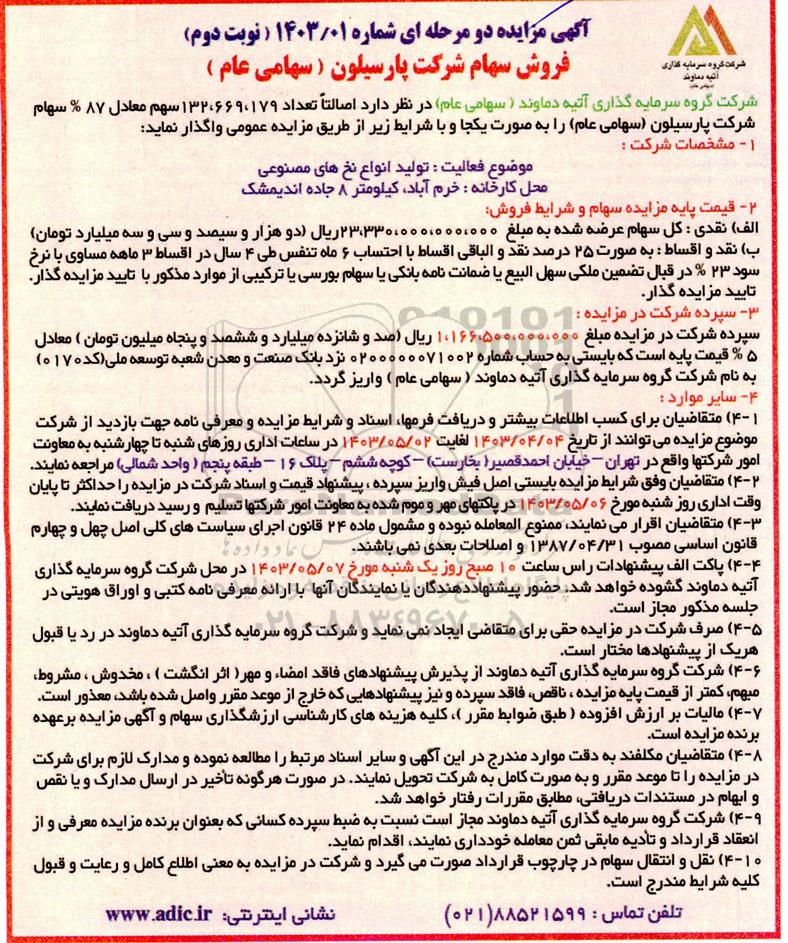 آگهی مزایده دو مرحله ای شماره ۱۴۰۳/۰۱ ( نوبت دوم)
فروش سهام شرکت پارسیلون ( سهامی عام )
شرکت گروه سرمایه گذاری
آتیه دماوند
(سهامی عام)
شرکت گروه سرمایه گذاری آتیه دماوند ( سهامی عام) در نظر دارد اصالتاً تعداد ۱۳۲،۶۶۹،۱۷۹سهم معادل ۸۷ % سهام
شرکت پارسیلون (سهامی عام) را به صورت یکجا و با شرایط زیر از طریق مزایده عمومی واگذار نماید:
۱- مشخصات شرکت :
موضوع فعالیت : تولید انواع نخ های مصنوعی
محل کارخانه : خرم آباد، کیلومتر ۸ جاده اندیمشک
۲- قیمت پایه مزایده سهام و شرایط فروش:
الف) نقدی : کل سهام عرضه شده به مبلغ ۲۳،۳۳۰،۰۰۰،۰۰۰،۰۰۰ریال (دو هزار و سیصد و سی و سه میلیارد تومان)
ب) نقد و اقساط : به صورت ۲۵ درصد نقد و الباقی اقساط با احتساب ۶ ماه تنفس طی ۴ سال در اقساط ۳ ماهه مساوی با نرخ
سود ۲۳ % در قبال تضمین ملکی سهل البیع یا ضمانت نامه بانکی یا سهام بورسی یا ترکیبی از موارد مذکور با تایید مزایده گذار.
تایید مزایده گذار.
۳- سپرده شرکت در مزایده :
سپرده شرکت در مزایده مبلغ ۱،۱۶۶،۵۰۰،۰۰۰،۰۰۰ ریال (صد و شانزده میلیارد و ششصد و پنجاه میلیون تومان ) معادل
۵ % قیمت پایه است که بایستی به حساب شماره ۰۲۰۰۰۰۰۰۷۱۰۰۲ نزد بانک صنعت و معدن شعبه توسعه ملی(کد۰۱۷۰)
به نام شرکت گروه سرمایه گذاری آتیه دماوند ( سهامی عام ) واریز گردد.
۴- سایر موارد :
۴-۱) متقاضیان برای کسب اطلاعات بیشتر و دریافت فرمها، اسناد و شرایط مزایده و معرفی نامه جهت بازدید از شرکت
موضوع مزایده می توانند از تاریخ ۱۴۰۳/۰۴/۰۴ لغایت ۱۴۰۳/۰۵/۰۲ در ساعات اداری روزهای شنبه تا چهارشنبه به معاونت
امور شرکتها واقع در تهران –خیابان احمدقصیر( بخارست) –کوچه ششم –پلاک ۱۶ –طبقه پنجم ( واحد شمالی) مراجعه نمایند.
۴-۲) متقاضیان وفق شرایط مزایده بایستی اصل فیش واریز سپرده ، پیشنهاد قیمت و اسناد شرکت در مزایده را حداکثر تا پایان
وقت اداری روز شنبه مورخ ۱۴۰۳/۰۵/۰۶ در پاکتهای مهر و موم شده به معاونت امور شرکتها تسلیم و رسید دریافت نمایند.
۴-۳) متقاضیان اقرار می نمایند، ممنوع المعامله نبوده و مشمول ماده ۲۴ قانون اجرای سیاست های کلی اصل چهل و چهارم
قانون اساسی مصوب ۱۳۸۷/۰۴/۳۱ و اصلاحات بعدی نمی باشند.
۴-۴) پاکت الف پیشنهادات راس ساعت ۱۰ صبح روز یک شنبه مورخ ۱۴۰۳/۰۵/۰۷ در محل شرکت گروه سرمایه گذاری
آتیه دماوند گشوده خواهد شد. حضور پیشنهاددهندگان یا نمایندگان آنها با ارائه معرفی نامه کتبی و اوراق هویتی در
جلسه مذکور مجاز است.
۴-۵) صرف شرکت در مزایده حقی برای متقاضی ایجاد نمی نماید و شرکت گروه سرمایه گذاری آتیه دماوند در رد یا قبول
هریک از پیشنهادها مختار است.
۴-۶) شرکت گروه سرمایه گذاری آتیه دماوند از پذیرش پیشنهادهای فاقد امضاء و مهر( اثر انگشت ) ، مخدوش ، مشروط،
مبهم، کمتر از قیمت پایه مزایده ، ناقص، فاقد سپرده و نیز پیشنهادهایی که خارج از موعد مقرر واصل شده باشد، معذور است.
۴-۷) مالیات بر ارزش افزوده ( طبق ضوابط مقرر )، کلیه هزینه های کارشناسی ارزشگذاری سهام و آگهی مزایده برعهده
برنده مزایده است.
۴-۸) متقاضیان مکلفند به دقت موارد مندرج در این آگهی و سایر اسناد مرتبط را مطالعه نموده و مدارک لازم برای شرکت
در مزایده را تا موعد مقرر و به صورت کامل به شرکت تحویل نمایند. در صورت هرگونه تأخیر در ارسال مدارک و یا نقص
و ابهام در مستندات دریافتی، مطابق مقررات رفتار خواهد شد.
۴-۹) شرکت گروه سرمایه گذاری آتیه دماوند مجاز است نسبت به ضبط سپرده کسانی که بعنوان برنده مزایده معرفی و از
انعقاد قرارداد و تأدیه مابقی ثمن معامله خودداری نمایند، اقدام نماید.
۴-۱۰) نقل و انتقال سهام در چارچوب قرارداد صورت می گیرد و شرکت در مزایده به معنی اطلاع کامل و رعایت و قبول
کلیه شرایط مندرج است.
تلفن تماس : ۸۸۵۲۱۵۹۹(۰۲۱) نشانی اینترنتی: www.adic.ir